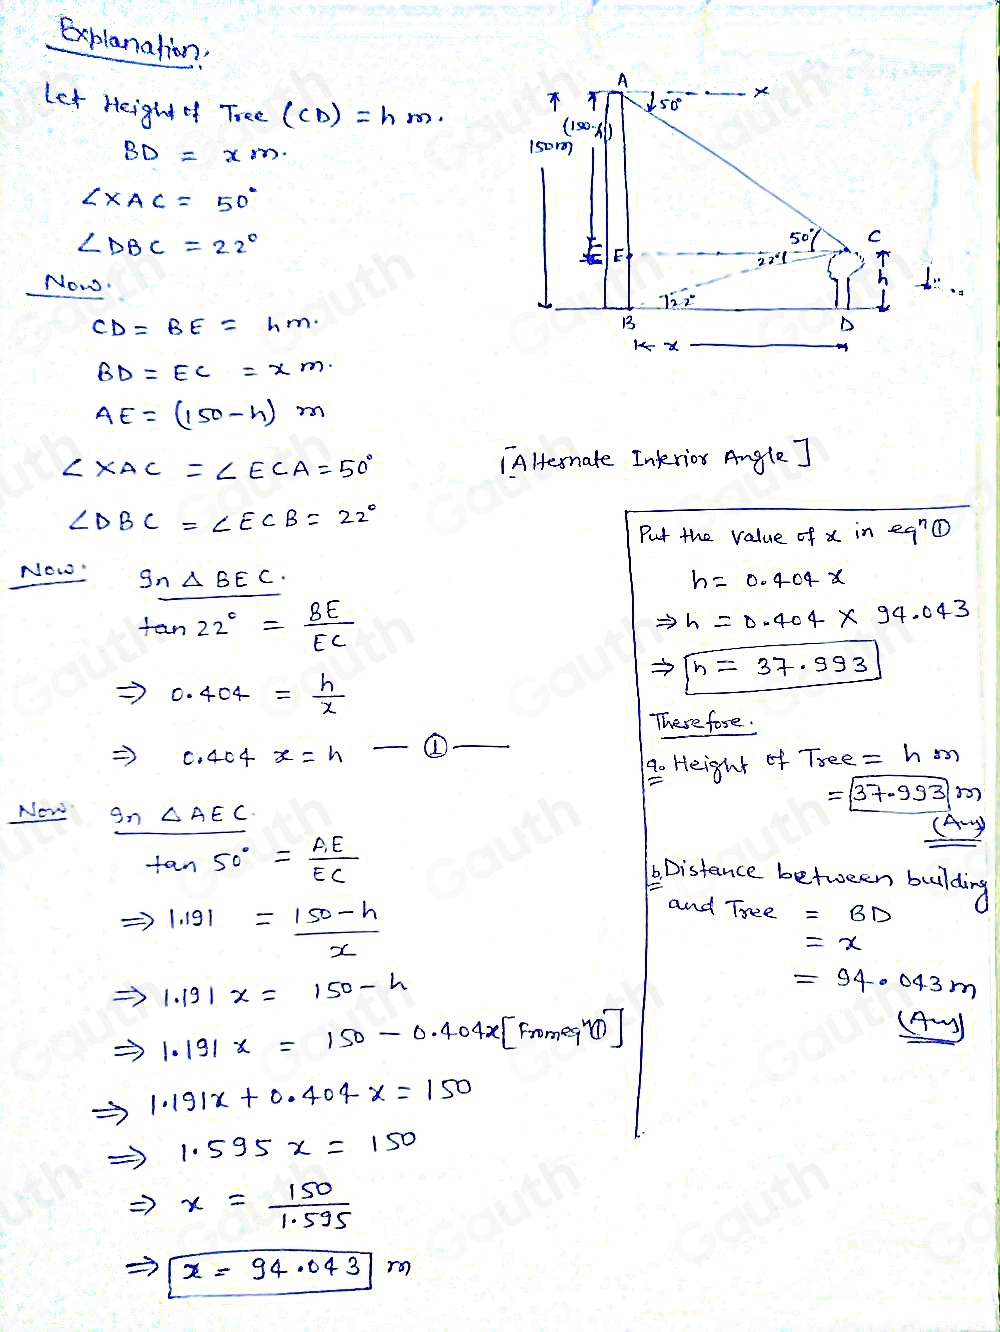 Explanation.
Let Height of Tree (CD) = h m.
BD = x m.
∠XAC = 50°
∠DBC = 22°
Now.
CD = BE = h m.
BD = EC = x m.
AE = (150-h) m
∠XAC = ∠ECA = 50° [Alternate Interior Angle]
∠DBC = ∠ECB = 22°
A
50°
x
(150-h)
150m
50°
C
E
22°
h
22°
B
D
x
Now. In △ BEC.
tan 22° = BE/EC
⇒ 0.404 = h/x
⇒ 0.404 x = h — ① —
Now In △ AEC.
tan 50° = AE/EC
⇒ 1.191 = 150-h/x
⇒ 1.191 x = 150-h
⇒ 1.191 x = 150 - 0.404x [From eqⁿ ①]
⇒ 1.191x + 0.404 x = 150
⇒ 1.595 x = 150
⇒ x = 150/1.595
⇒ x = 94.043 m
Put the value of x in eqⁿ ①
h = 0.404 x
⇒ h = 0.404 × 94.043
⇒ h = 37.993
Therefore.
a. Height of Tree = h m
= 37.993 m
(Ans)
b. Distance between building
and Tree = BD
= x
= 94.043 m
(Ans)
Gauth